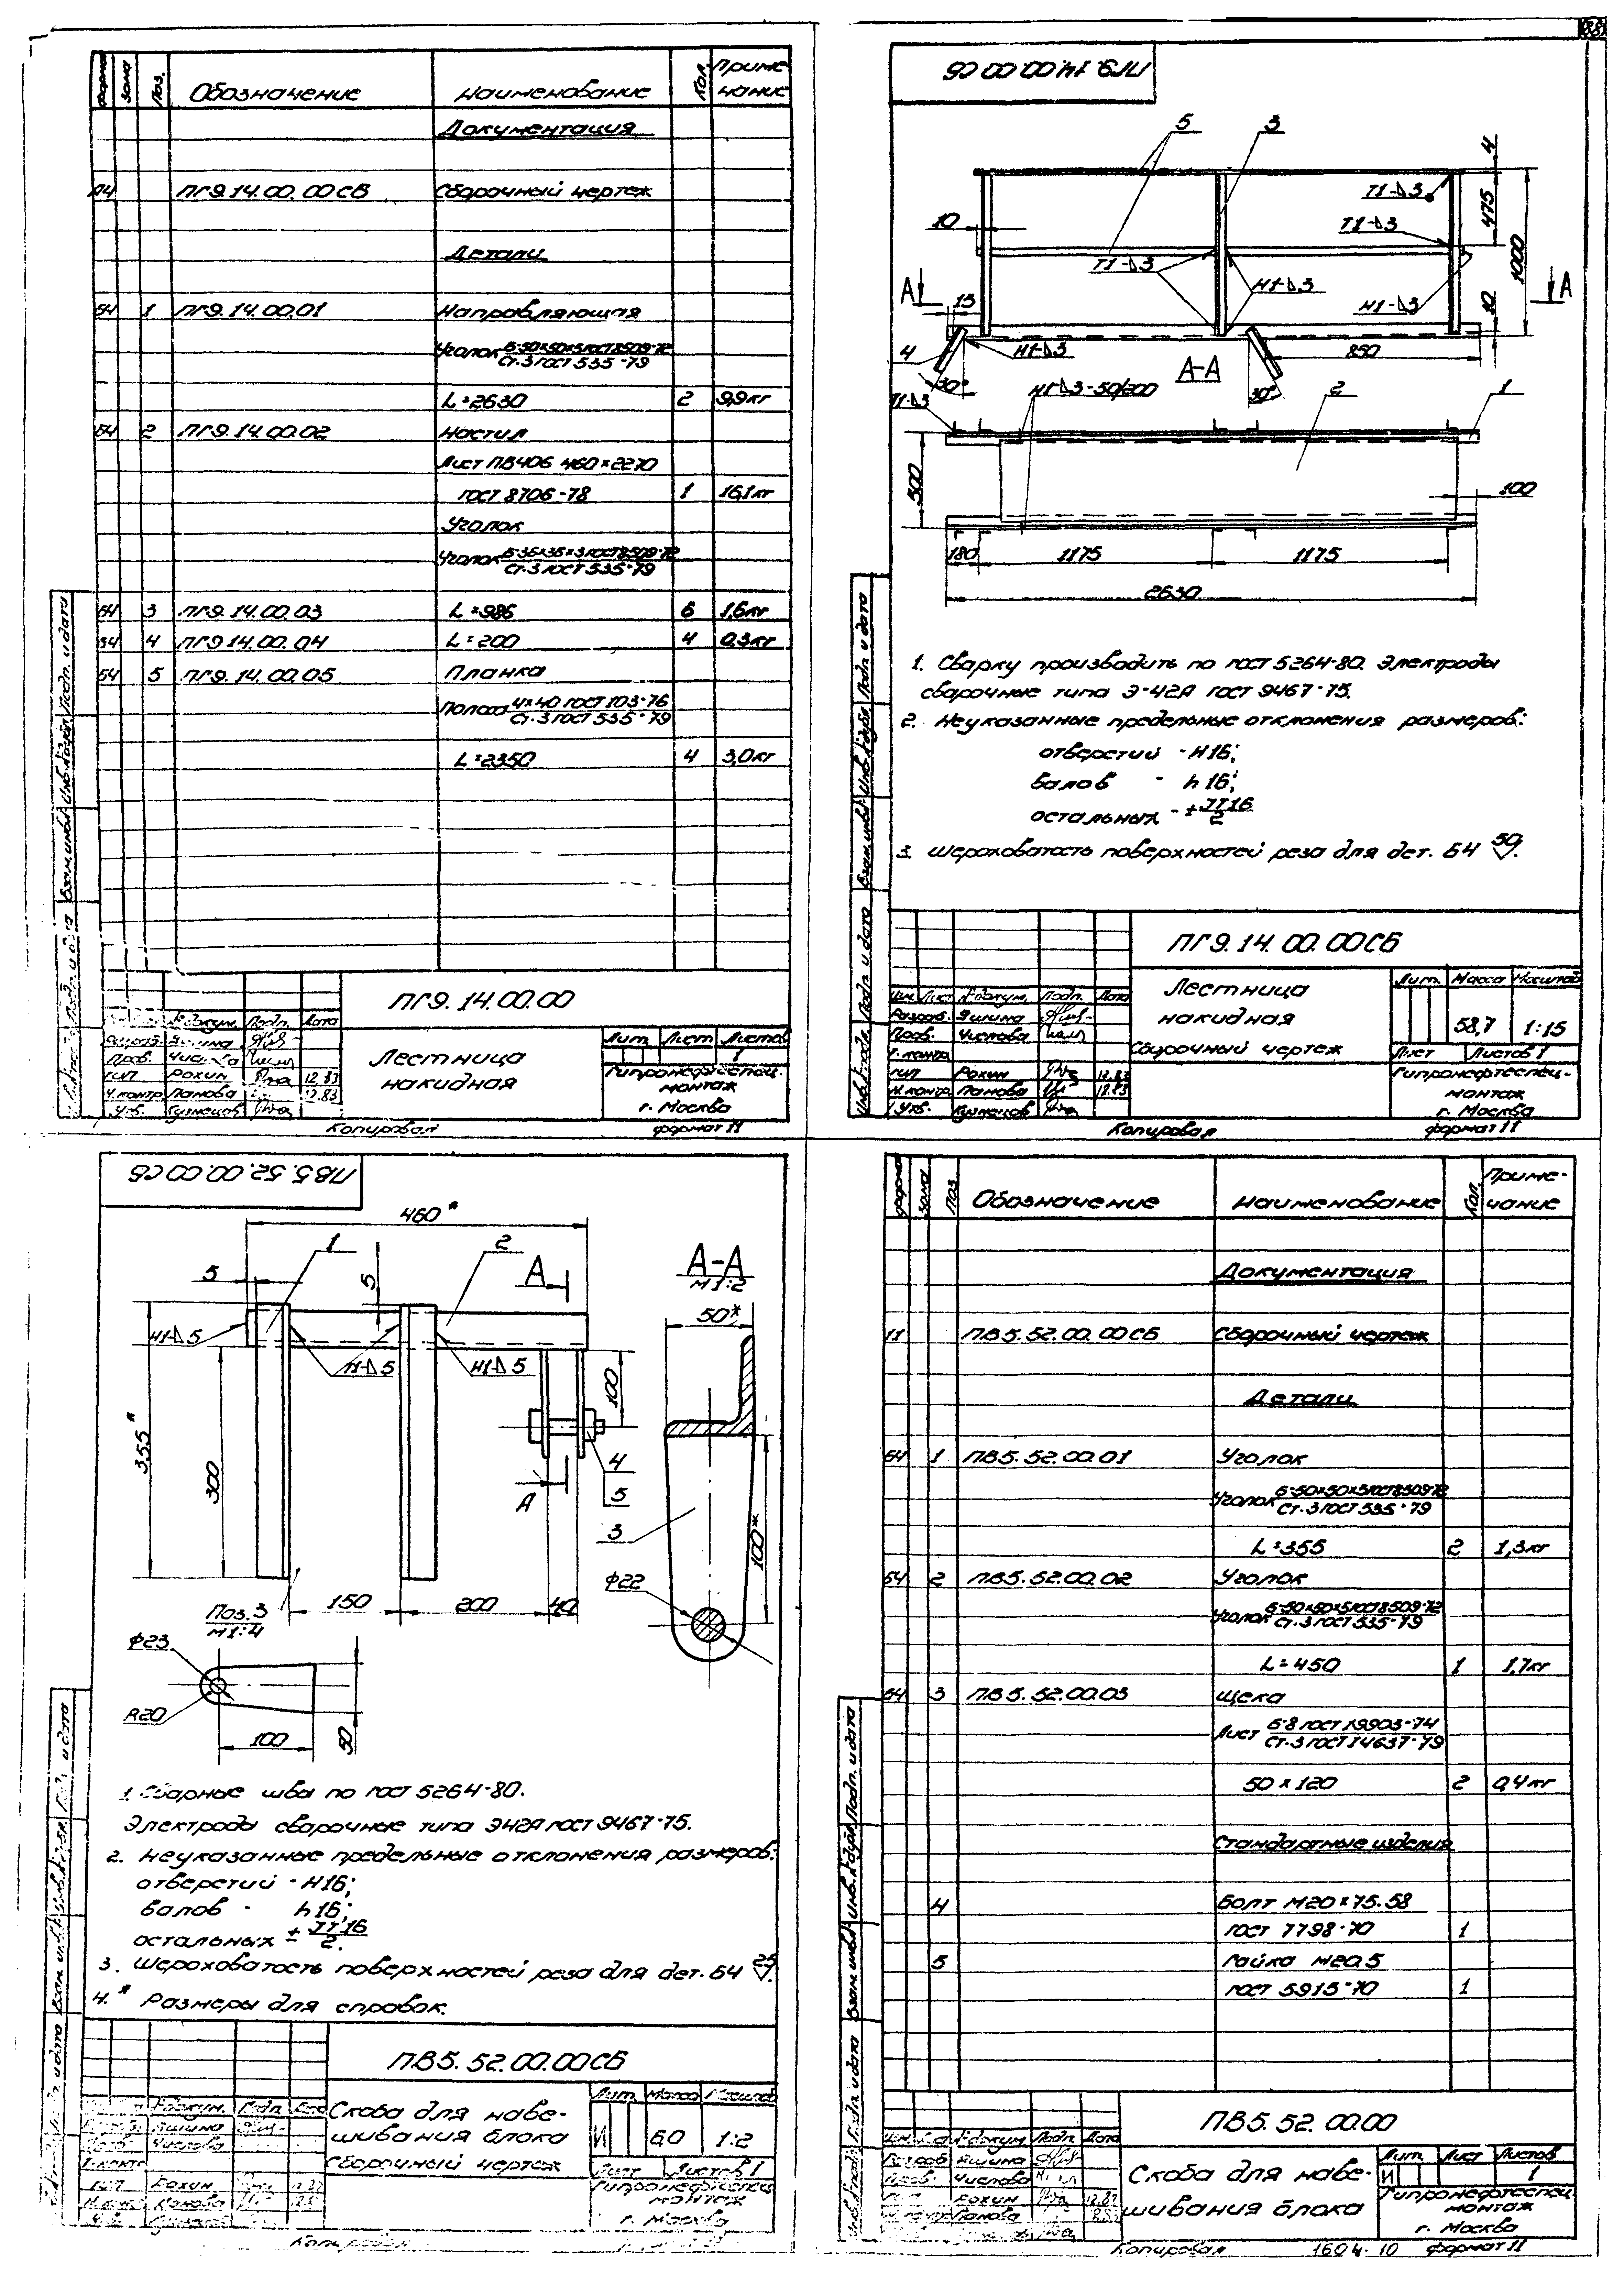 88
Формат
Зона
Поз.
Обозначение
Наименование
Кол.
Приме
чание
Документация
А4 ПГ9.14.00.00СБ Сборочный чертеж
Детали
Б4 1 ПГ9.14.00.01 Направляющая
Уголок Б-50×50×5 ГОСТ 8509-72
Ст.3 ГОСТ 535-79
L=2630 2 9,9кг
Б4 2 ПГ9.14.00.02 Настил
Лист ПВ406 460×2270
ГОСТ 8706-78 1 16,1кг
Уголок
Уголок Б-36×36×3 ГОСТ 8509-72
Ст.3 ГОСТ 535-79
Б4 3 ПГ9.14.00.03 L=986 6 1,6кг
Б4 4 ПГ9.14.00.04 L=200 4 0,3кг
Б4 5 ПГ9.14.00.05 Планка
Полоса 4×40 ГОСТ 103-76
Ст.3 ГОСТ 535-79
L=2350 4 3,0кг
ПГ9.14.00.00
№ докум. Подп. Дата
Разраб. Яшина
Пров. Чистова
ГИП Рохин 12.83
Н.контр. Панова 12.83
Утв. Кузнецов
Лестница
накидная
Лит. Лист Листов
1
Гипронефтеспец-
монтаж
г. Москва
Копировал формат 11
ПГ9.14.00.00 СБ
5 3
4
Т1-△3
475
10
Т1-△3
1000
Т1-△3
Н1-△3
А А
15
Н1-△3
10
4
Н1-△3
850
А-А
30° 30°
Н1-△3-50/200
2 1
Т1-△3
500
100
180 1175 1175
2630
1. Сварку производить по ГОСТ 5264-80. Электроды
сварочные типа Э-42А ГОСТ 9467-75.
2. Неуказанные предельные отклонения размеров:
отверстий - Н16;
валов - h16;
остальных - ± IT16
2
3. Шероховатость поверхностей реза для дет. Б4 50.
ПГ9.14.00.00СБ
Изм. Лист № докум. Подп. Дата
Разраб. Яшина
Пров. Чистова
Т.контр.
ГИП Рохин 12.83
Н.контр. Панова 12.83
Утв. Кузнецов
Лестница
накидная
Сборочный чертеж
Лит. Масса Масштаб
58,7 1:15
Лист Листов 1
Гипронефтеспец-
монтаж
г. Москва
Копировал формат 11
ПВ5.52.00.00СБ
460*
1 2
5 5
А
А-А
М1:2
50*
Н1-△5
Н1-△5 Н1-△5
100
355*
300
4
5
А
3
100*
Ф22
150 200 40
Поз.3
М1:4
Ф23
R20
100
50
1. Сварные швы по ГОСТ 5264-80.
Электроды сварочные типа Э42А ГОСТ 9467-75.
2. Неуказанные предельные отклонения размеров:
отверстий - Н16;
валов - h16;
остальных ± IT16
2.
3. Шероховатость поверхностей реза для дет. Б4 25.
4. * Размеры для справок.
ПВ5.52.00.00СБ
№ докум. Подп.
Яшина
Чистова
Т.контр.
ГИП Рохин
Н.контр. Панова
Скоба для наве-
шивания блока
Сборочный чертеж
Лит. Масса Масштаб
И 6,0 1:2
Лист Листов 1
Гипронефтеспец-
монтаж
г. Москва
Копировал
Формат
Зона
Поз.
Обозначение
Наименование
Кол.
Приме-
чание
Документация
11 ПВ5.52.00.00СБ Сборочный чертеж
Детали
Б4 1 ПВ5.52.00.01 Уголок
Уголок Б-50×50×5 ГОСТ 8509-72
Ст.3 ГОСТ 535-79
L=355 2 1,3кг
Б4 2 ПВ5.52.00.02 Уголок
Уголок Б-50×50×5 ГОСТ 8509-72
Ст.3 ГОСТ 535-79
L=450 1 1,7кг
Б4 3 ПВ5.52.00.03 Щека
Лист Б-8 ГОСТ 19903-74
Ст.3 ГОСТ 14637-79
50×120 2 0,4кг
Стандартные изделия
4 Болт М20×75.58
ГОСТ 7798-70 1
5 Гайка М20.5
ГОСТ 5915-70 1
ПВ5.52.00.00
№ докум. Подп. Дата
Разраб. Яшина
Чистова
Рохин
Панова
Скоба для наве-
шивания блока
Лит. Лист Листов
И 1
Гипронефтеспец-
монтаж
г. Москва
Копировал 1604-10 формат 11